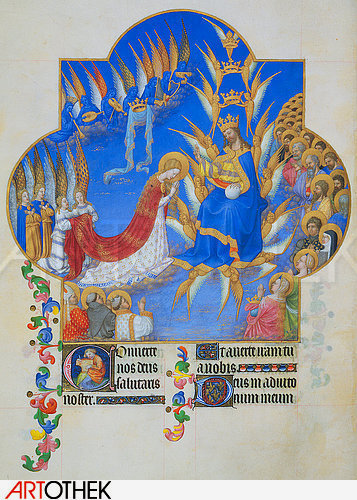 Conuerte
nos deus
salutaris
noster.
Et auerte iram tu
a nobis
Deus in adiuto
rium meum
ARTOTHEK